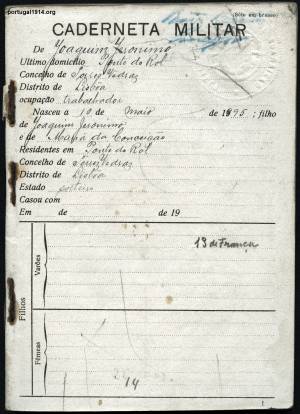 portugal1914.org
(Selo em branco)
CADERNETA MILITAR
De Joaquim Jeronimo
Ultimo domicilio Ponte do Rol
Concelho de Torres Vedras
Distrito de Lisboa
ocupação trabalhador
Nasceu a 10 de Maio de 1895; filho
de Joaquim Jeronimo
e de Maria da Conceição
Residentes em Ponte do Rol
Concelho de Torres Vedras
Distrito de Lisboa
Estado solteiro
Casou com
Em de de 19
Filhos
Varões
13 de França
Fêmeas
214
1